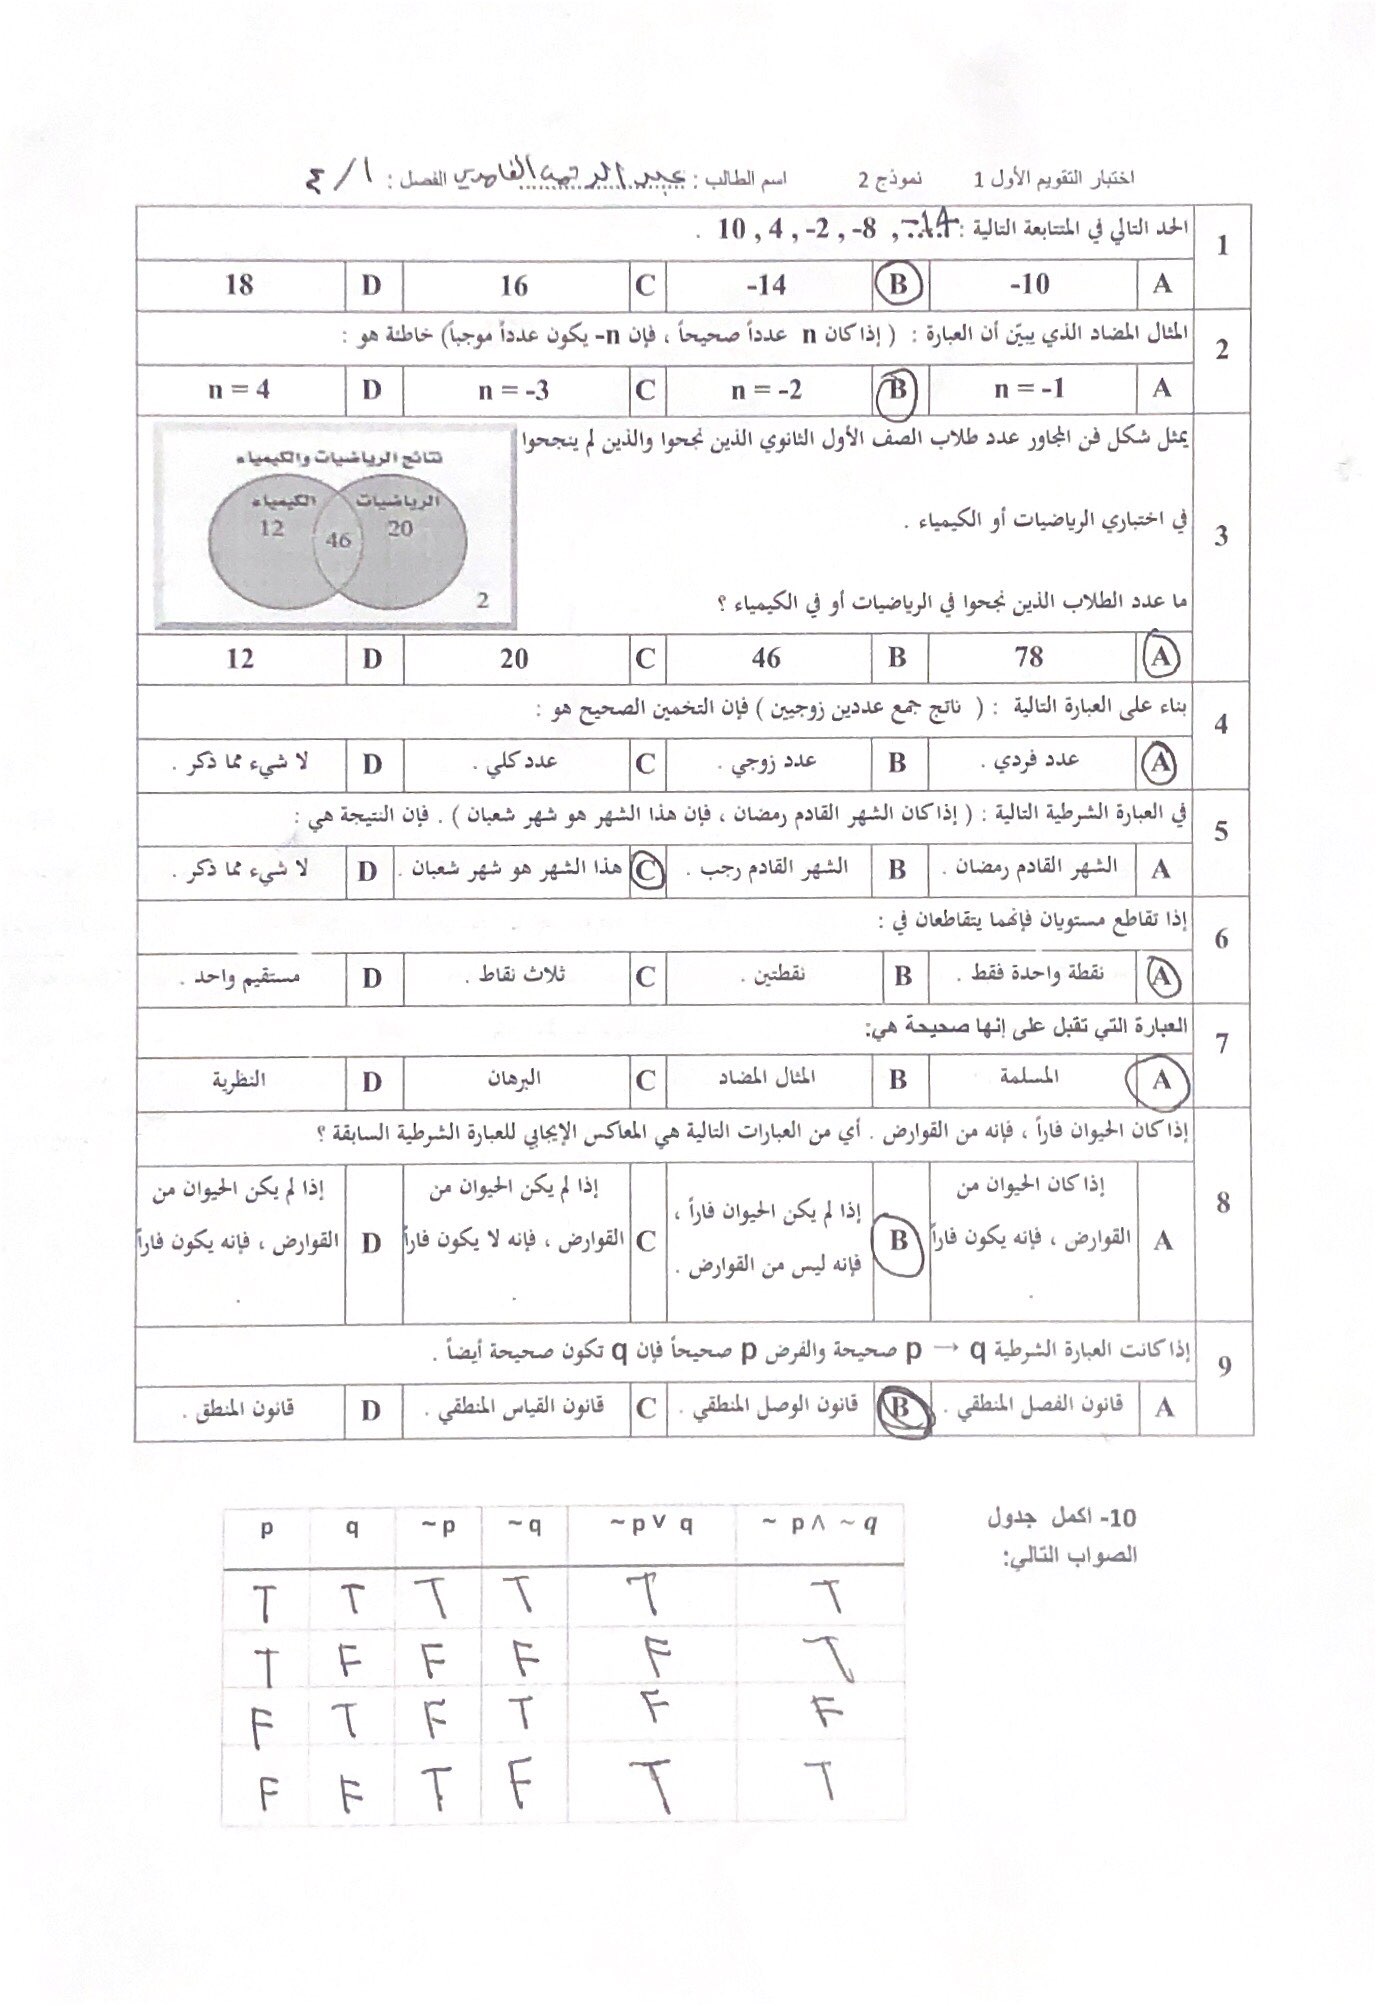 اختبار التقويم الأول 1 نموذج 2 اسم الطالب : عبد الرحمن الغامدي الفصل : ١/٤
1 الحد التالي في المتتابعة التالية : 10 , 4 , -2 , -8 , -14 .
A -10 B -14 C 16 D 18
2 المثال المضاد الذي يبيّن أن العبارة : ( إذا كان n عدداً صحيحاً ، فإن n- يكون عدداً موجباً) خاطئة هو :
A n = -1 B n = -2 C n = -3 D n = 4
3 يمثل شكل فن المجاور عدد طلاب الصف الأول الثانوي الذين نجحوا والذين لم ينجحوا
في اختباري الرياضيات أو الكيمياء .
ما عدد الطلاب الذين نجحوا في الرياضيات أو في الكيمياء ؟
نتائج الرياضيات والكيمياء
الرياضيات الكيمياء
20 46 12
2
A 78 B 46 C 20 D 12
4 بناء على العبارة التالية : ( ناتج جمع عددين زوجيين ) فإن التخمين الصحيح هو :
A عدد فردي . B عدد زوجي . C عدد كلي . D لا شيء مما ذكر .
5 في العبارة الشرطية التالية : ( إذا كان الشهر القادم رمضان ، فإن هذا الشهر هو شهر شعبان ) . فإن النتيجة هي :
A الشهر القادم رمضان . B الشهر القادم رجب . C هذا الشهر هو شهر شعبان . D لا شيء مما ذكر .
6 إذا تقاطع مستويان فإنهما يتقاطعان في :
A نقطة واحدة فقط . B نقطتين . C ثلاث نقاط . D مستقيم واحد .
7 العبارة التي تقبل على إنها صحيحة هي:
A المسلمة B المثال المضاد C البرهان D النظرية
8 إذا كان الحيوان فاراً ، فإنه من القوارض . أي من العبارات التالية هي المعاكس الإيجابي للعبارة الشرطية السابقة ؟
A إذا كان الحيوان من القوارض ، فإنه يكون فاراً . B إذا لم يكن الحيوان فاراً ، فإنه ليس من القوارض . C إذا لم يكن الحيوان من القوارض ، فإنه لا يكون فاراً . D إذا لم يكن الحيوان من القوارض ، فإنه يكون فاراً .
9 إذا كانت العبارة الشرطية p → q صحيحة والفرض p صحيحاً فإن q تكون صحيحة أيضاً .
A قانون الفصل المنطقي . B قانون الوصل المنطقي . C قانون القياس المنطقي . D قانون المنطق .
10- اكمل جدول
الصواب التالي:
p q ~p ~q ~p ∨ q ~ p ∧ ~q
T T T T T T
T F F F F T
F T F T F F
F F T F T T